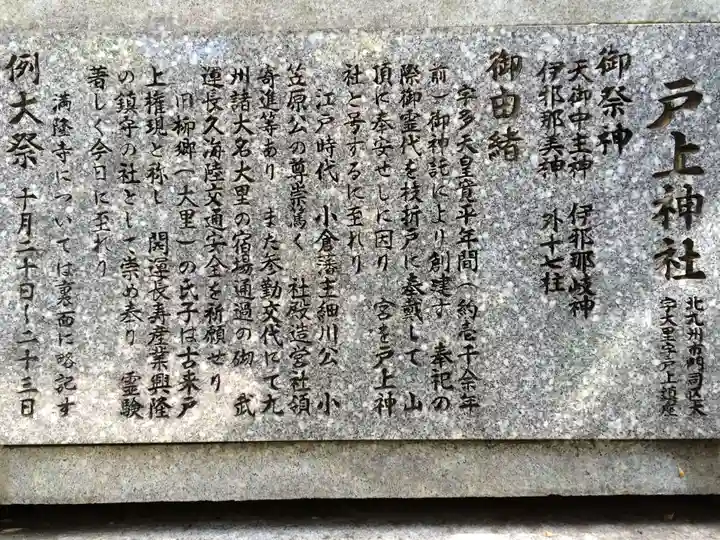 戸上神社
北九州市門司区大
字大里字戸上頂鹿
御祭神
天御中主神 伊邪那岐神
伊邪那美神 外十七柱
御由緒
宇多天皇寛平年間(約壱千余年
前)御神託により創建す 奉祀の
際御霊代を枝折戸に奉戴して 山
頂に奉安せしに因り 宮を戸上神
社と号するに至れり
江戸時代 小倉藩主細川公 小
笠原公の尊崇篤く 社殿造営社領
寄進等あり また参勤交代にて九
州諸大名大里の宿場通過の砌 武
運長久海陸交通安全を祈願せり
旧柳郷(大里)の氏子は古来戸
上権現と称し 開運長寿産業興隆
の鎮守の社として崇め奉り 霊験
著しく今日に至れり
満隆寺については裏面に略記す
例大祭 十月二十日~二十三日